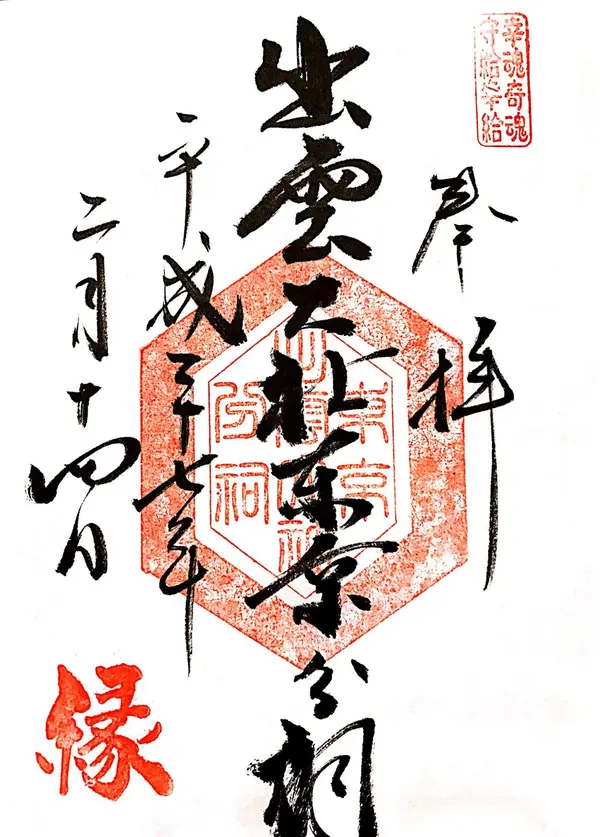 幸魂奇魂
守給幸給
奉拝
出雲大社東京分祠
平成二十七年
二月十四日
東京
分祠
縁